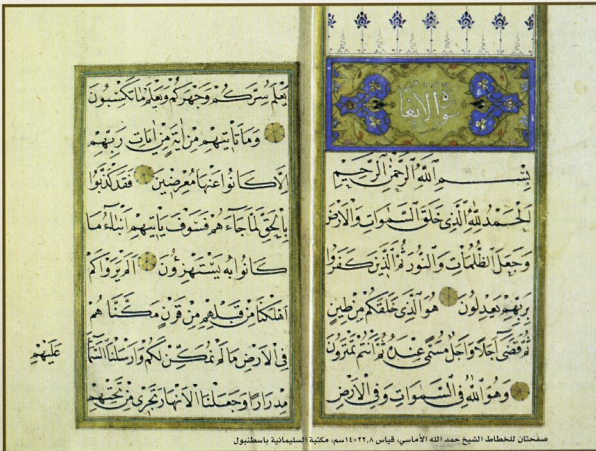 سورة الانعام
بِسْمِ اللَّهِ الرَّحْمَنِ الرَّحِيمِ
اَلْحَمْدُ لِلَّهِ الَّذِى خَلَقَ السَّمَوَاتِ وَالْاَرْضَ
وَجَعَلَ الظُّلُمَاتِ وَالنُّورَ ثُمَّ الَّذِينَ كَفَرُوا
بِرَبِّهِمْ يَعْدِلُونَ هُوَ الَّذِى خَلَقَكُمْ مِنْ طِينٍ
ثُمَّ قَضَى اَجَلًا وَاَجَلٌ مُسَمًّى عِنْدَهُ ثُمَّ اَنْتُمْ تَمْتَرُونَ
وَهُوَ اللَّهُ فِى السَّمَوَاتِ وَفِى الْاَرْضِ
يَعْلَمُ سِرَّكُمْ وَجَهْرَكُمْ وَيَعْلَمُ مَا تَكْسِبُونَ
وَمَا تَاْتِيهِمْ مِنْ اٰيَةٍ مِنْ اٰيَاتِ رَبِّهِمْ
اِلَّا كَانُوا عَنْهَا مُعْرِضِينَ فَقَدْ كَذَّبُوا
بِالْحَقِّ لَمَّا جَاءَهُمْ فَسَوْفَ يَاْتِيهِمْ اَنْبَاءُ مَا
كَانُوا بِهِ يَسْتَهْزِؤُنَ اَلَمْ يَرَوْا كَمْ
اَهْلَكْنَا مِنْ قَبْلِهِمْ مِنْ قَرْنٍ مَكَّنَّاهُمْ
فِى الْاَرْضِ مَا لَمْ نُمَكِّنْ لَكُمْ وَاَرْسَلْنَا السَّمَاءَ
عَلَيْهِمْ
مِدْرَارًا وَجَعَلْنَا الْاَنْهَارَ تَجْرِى مِنْ تَحْتِهِمْ
صفحتان للخطاط الشيخ حمد الله الأماسي، قياس ٢٢،٨×١٤سم، مكتبة السليمانية باسطنبول